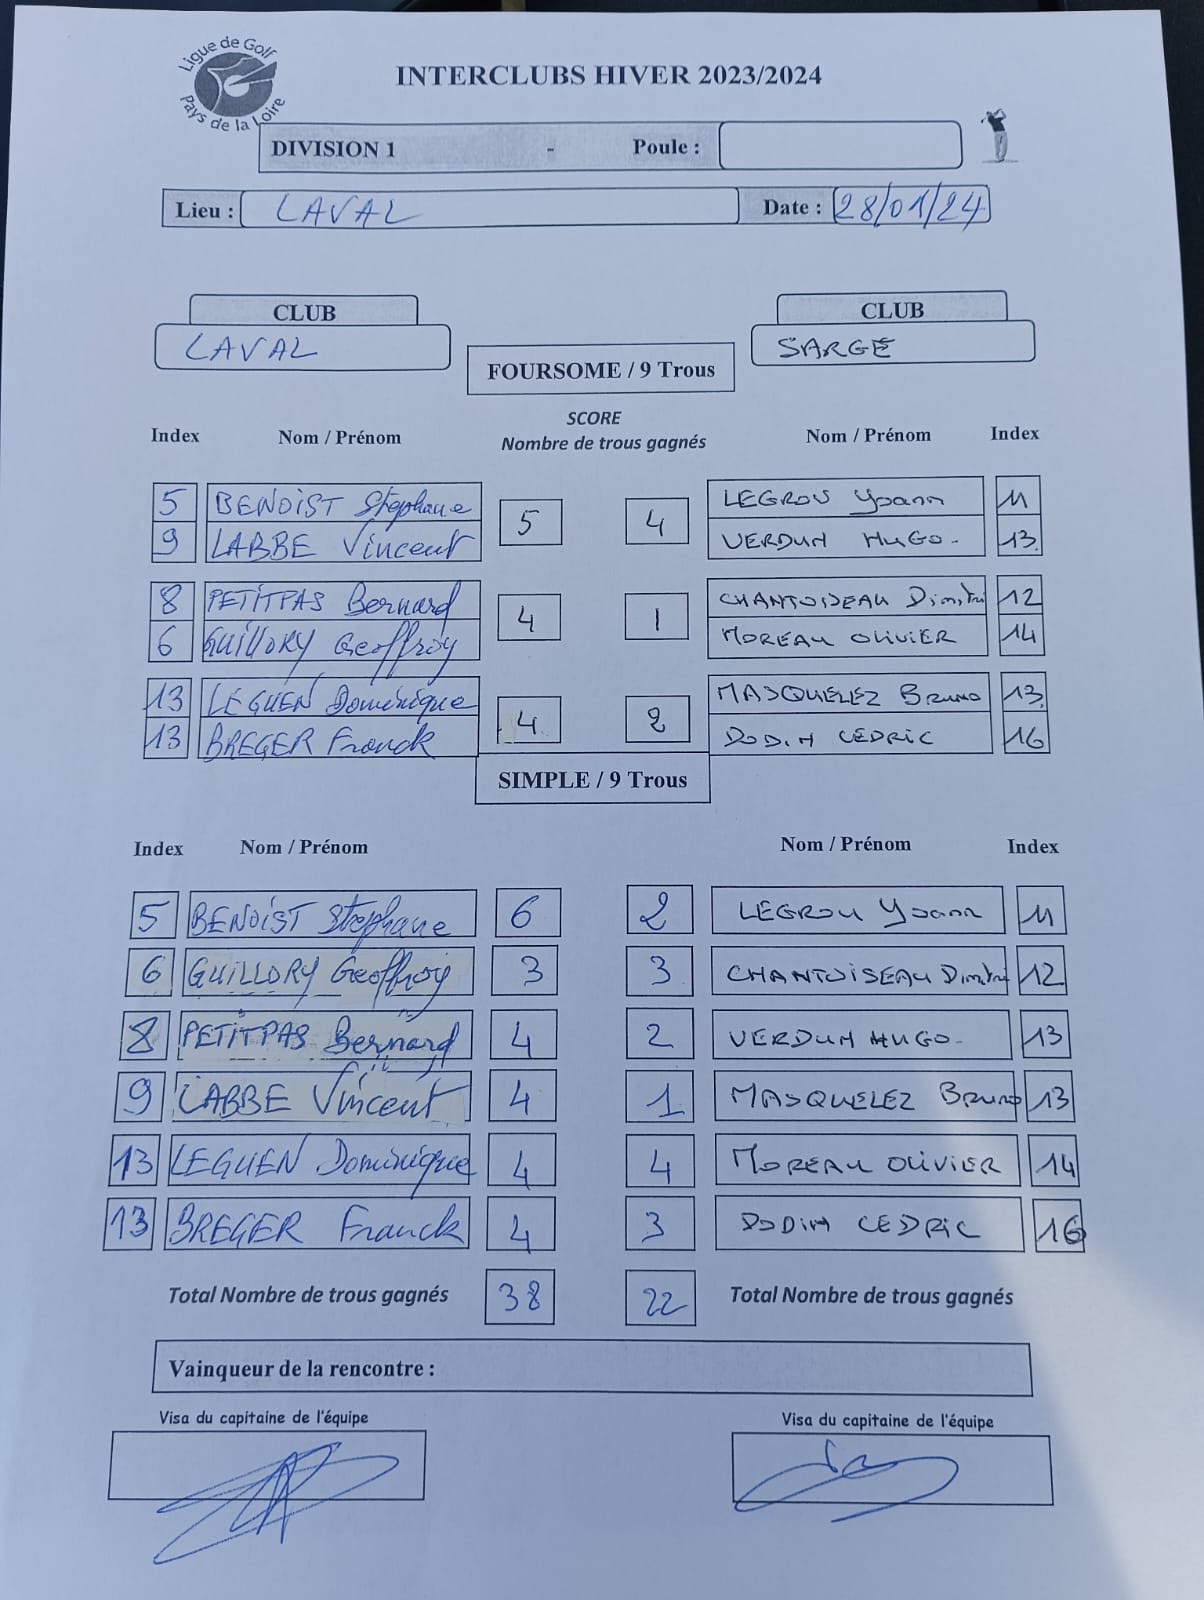 Ligue de Golf
Pays de la Loire
INTERCLUBS HIVER 2023/2024
DIVISION 1 - Poule :
Lieu : LAVAL Date : 28/01/24
CLUB CLUB
LAVAL SARGE
FOURSOME / 9 Trous
SCORE
Index Nom / Prénom Nombre de trous gagnés Nom / Prénom Index
5 BENOIST Stéphane 5 4 LEGROU Yoann 11
9 LABBE Vincent VERDUN HUGO- 13
8 PETITPAS Bernard 4 1 CHANTOISEAU Dimitri 12
6 GUILLORY Geoffroy MOREAU OLIVIER 14
13 LEGUEN Dominique 4 2 MASQUELEZ Bruno 13
13 BREGER Franck DODIN CEDRIC 16
SIMPLE / 9 Trous
Index Nom / Prénom Nom / Prénom Index
5 BENOIST Stephane 6 2 LEGROU Yoann 11
6 GUILLORY Geoffroy 3 3 CHANTOISEAU Dimitri 12
8 PETITPAS Bernard 4 2 VERDUN HUGO- 13
9 LABBE Vincent 4 1 MASQUELEZ Bruno 13
13 LEGUEN Dominique 4 4 MOREAU OLIVIER 14
13 BREGER Franck 4 3 DODIN CEDRIC 16
Total Nombre de trous gagnés 38 22 Total Nombre de trous gagnés
Vainqueur de la rencontre :
Visa du capitaine de l'équipe Visa du capitaine de l'équipe